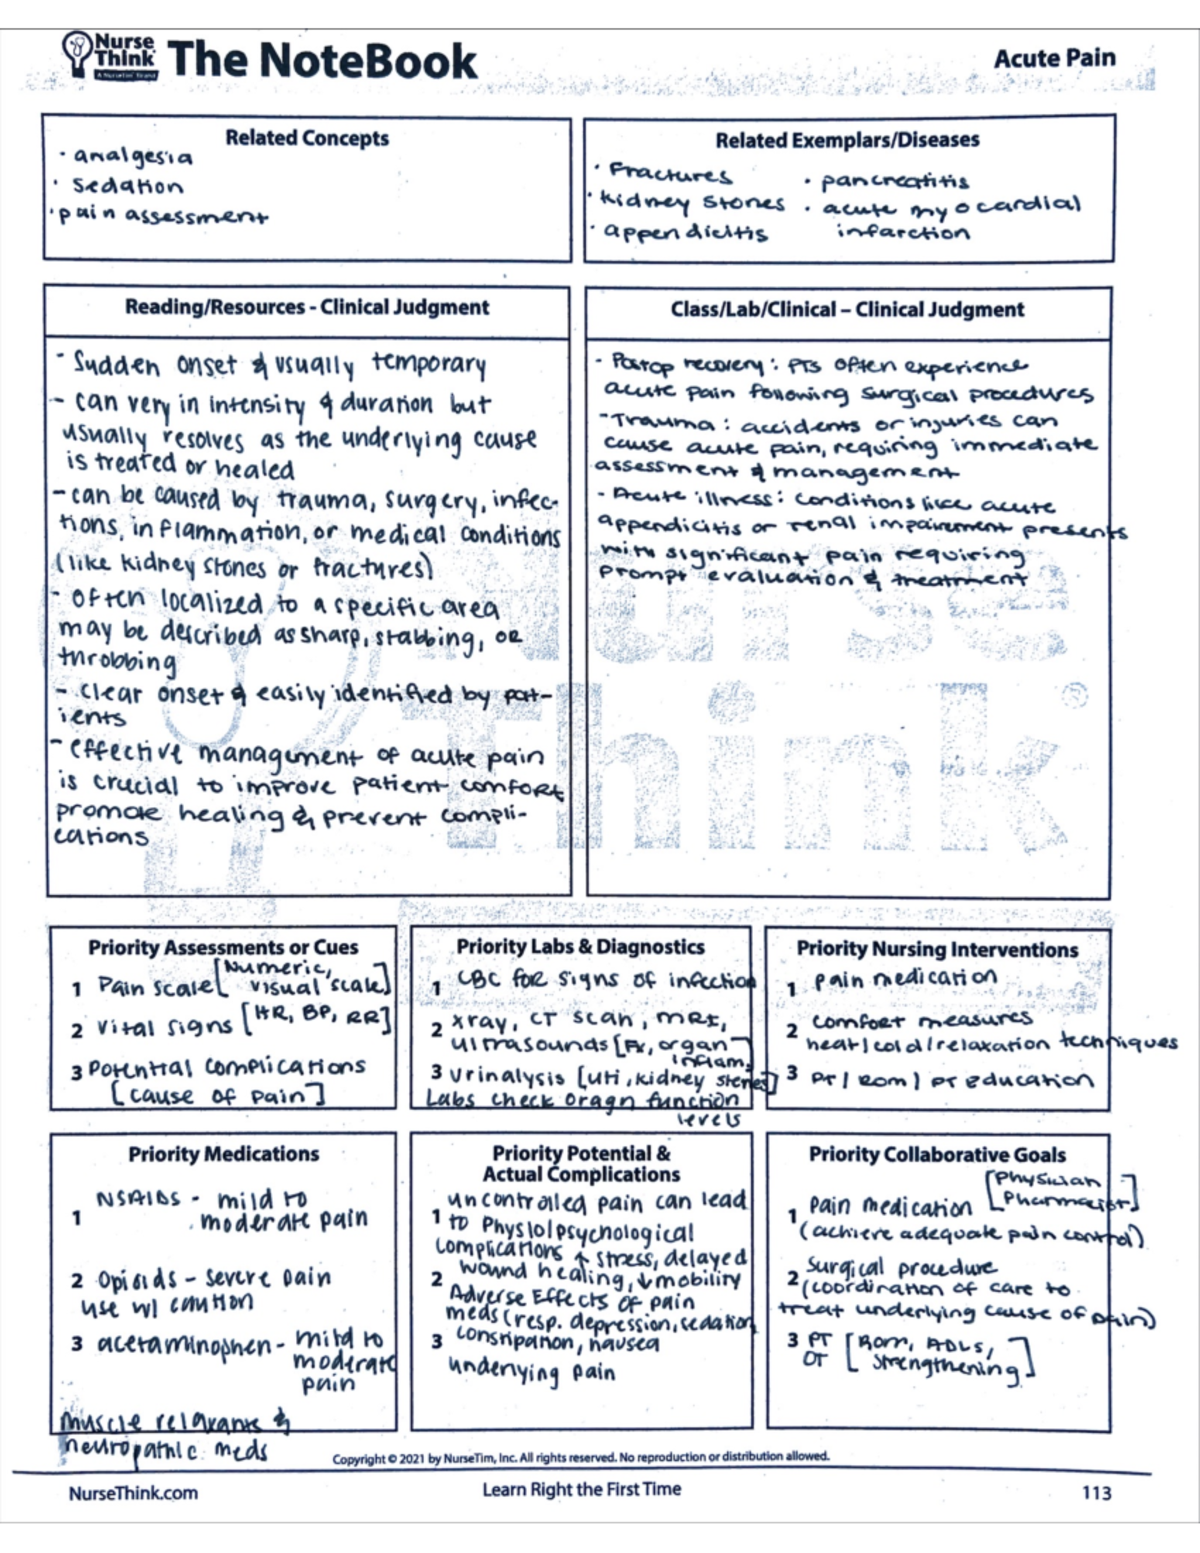 Nurse Think
A NurseTim Brand
The NoteBook
Acute Pain
Related Concepts
· analgesia
· sedation
· pain assessment
Related Exemplars/Diseases
· Fractures
· kidney stones
· appendicitis
· pancreatitis
· acute myocardial
infarction
Reading/Resources - Clinical Judgment
- Sudden onset & usually temporary
- can very in intensity & duration but
usually resolves as the underlying cause
is treated or healed
- can be caused by trauma, surgery, infec-
tions, inflammation, or medical conditions
(like kidney stones or fractures)
- often localized to a specific area
may be described as sharp, stabbing, or
throbbing
- clear onset & easily identified by pat-
ients
- effective management of acute pain
is crucial to improve patient comfort
promote healing & prevent compli-
cations
Class/Lab/Clinical – Clinical Judgment
- Postop recovery: PTs often experience
acute pain following surgical procedures
- Trauma: accidents or injuries can
cause acute pain, requiring immediate
assessment & management
- Acute illness: conditions like acute
appendicitis or renal impairment presents
with significant pain requiring
prompt evaluation & treatment
Nurse
Think
Priority Assessments or Cues
1 Pain scale [Numeric,
visual scale]
2 vital signs [HR, BP, RR]
3 Potential complications
[cause of pain]
Priority Labs & Diagnostics
1 CBC for signs of infection
2 xray, CT scan, MRI,
ultrasounds [Fx, organ
inflam.]
3 urinalysis [uti, kidney stones]
Labs check oragn function
levels
Priority Nursing Interventions
1 pain medication
2 comfort measures
heat/cold/relaxation techniques
3 PT/ROM/PT education
Priority Medications
1 NSAIDS - mild to
moderate pain
2 Opioids - severe pain
use w/ caution
3 acetaminophen - mild to
moderate
pain
muscle relaxants &
neuropathic meds
Priority Potential &
Actual Complications
uncontrolled pain can lead
1 to Physio/psychological
complications ↑ stress, delayed
2 wound healing, ↓ mobility
Adverse Effects of pain
meds (resp. depression, sedation,
3 constipation, nausea
underlying pain
Priority Collaborative Goals
1 pain medication [Physician
Pharmacist]
(achieve adequate pain control)
2 Surgical procedure
(coordination of care to
treat underlying cause of pain)
3 PT [ROM, ADLs,
OT strengthening]
Copyright © 2021 by NurseTim, Inc. All rights reserved. No reproduction or distribution allowed.
NurseThink.com
Learn Right the First Time
113